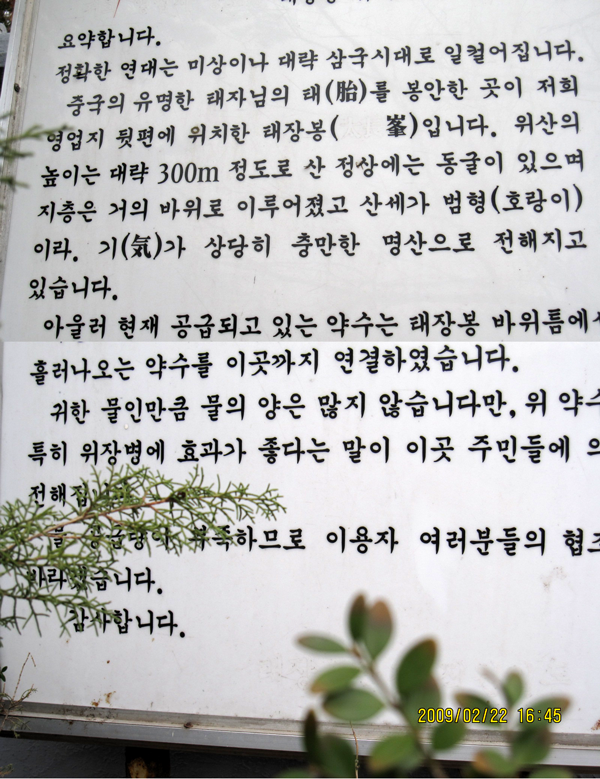 요약합니다.
정확한 연대는 미상이나 대략 삼국시대로 일컬어집니다.
중국의 유명한 태자님의 태(胎)를 봉안한 곳이 저희
영업지 뒷편에 위치한 태장봉( 峯)입니다. 위산의
높이는 대략 300m 정도로 산 정상에는 동굴이 있으며
지층은 거의 바위로 이루어졌고 산세가 범형(호랑이)
이라. 기(氣)가 상당히 충만한 명산으로 전해지고
있습니다.
아울러 현재 공급되고 있는 약수는 태장봉 바위틈에서
흘러나오는 약수를 이곳까지 연결하였습니다.
귀한 물인만큼 물의 양은 많지 않습니다만, 위 약수
특히 위장병에 효과가 좋다는 말이 이곳 주민들에 의
전해집니다.
물 부족하므로 이용자 여러분들의 협조
바라겠습니다.
감사합니다.
2009/02/22 16:45